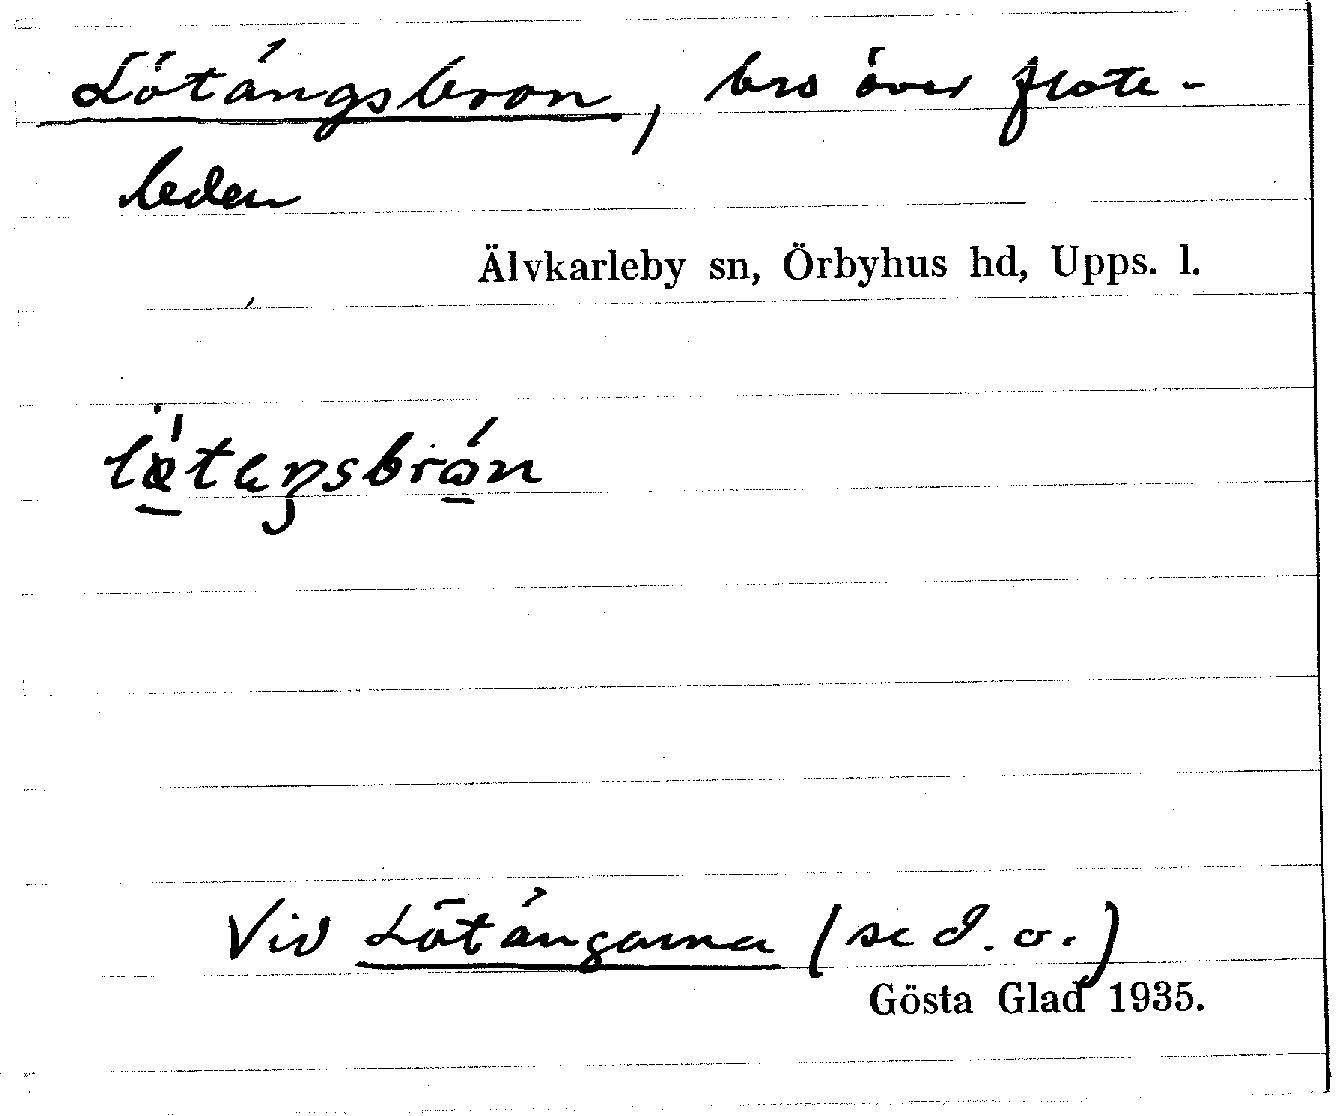 Lötängsbron, bro över flote-
leden
Älvkarleby sn, Örbyhus hd, Upps. l.
Vid Lötängarna (se d. o.)
Gösta Glad 1935.